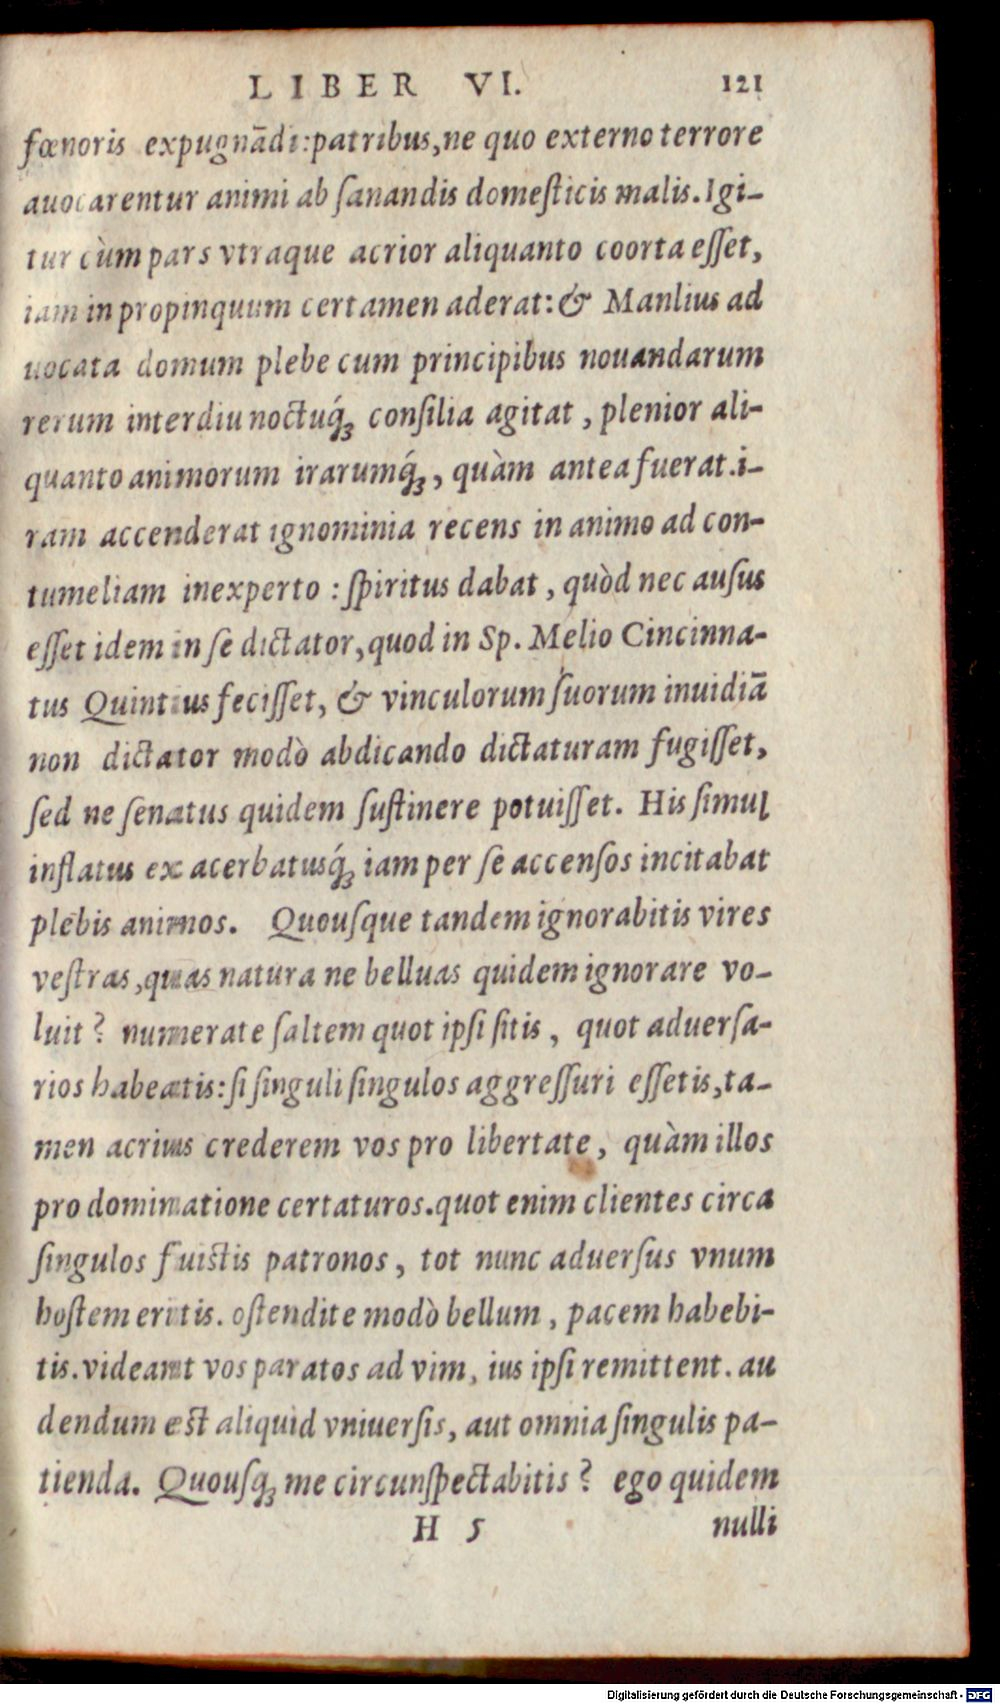 LIBER VI. 121
fœnoris expugnādi: patribus, ne quo externo terrore
auocarentur animi ab ſanandis domeſticis malis. Igi-
tur cùm pars vtraque acrior aliquanto coorta eſſet,
iam in propinquum certamen aderat: & Manlius ad
uocata domum plebe cum principibus nouandarum
rerum interdiu noctuq́ꝫ conſilia agitat, plenior ali-
quanto animorum irarumq́ꝫ, quàm antea fuerat. i-
ram accenderat ignominia recens in animo ad con-
tumeliam inexperto: ſpiritus dabat, quòd nec auſus
eſſet idem in ſe dictator, quod in Sp. Melio Cincinna-
tus Quintius feciſſet, & vinculorum ſuorum inuidiā
non dictator modò abdicando dictaturam fugiſſet,
ſed ne ſenatus quidem ſuſtinere potuiſſet. His ſimul
inflatus ex acerbatusq́ꝫ iam per ſe accenſos incitabat
plebis animos. Quouſque tandem ignorabitis vires
veſtras, quas natura ne belluas quidem ignorare vo-
luit? numerate ſaltem quot ipſi ſitis, quot aduerſa-
rios habeatis: ſi ſinguli ſingulos aggreſſuri eſſetis, ta-
men acrius crederem vos pro libertate, quàm illos
pro dominatione certaturos. quot enim clientes circa
ſingulos fuiſtis patronos, tot nunc aduerſus vnum
hoſtem eritis. oſtendite modò bellum, pacem habebi-
tis. videant vos paratos ad vim, ius ipſi remittent. au
dendum eſt aliquid vniuerſis, aut omnia ſingulis pa-
tienda. Quouſqꝫ me circunſpectabitis? ego quidem
H 5 nulli
Digitalisierung gefördert durch die Deutsche Forschungsgemeinschaft - DFG